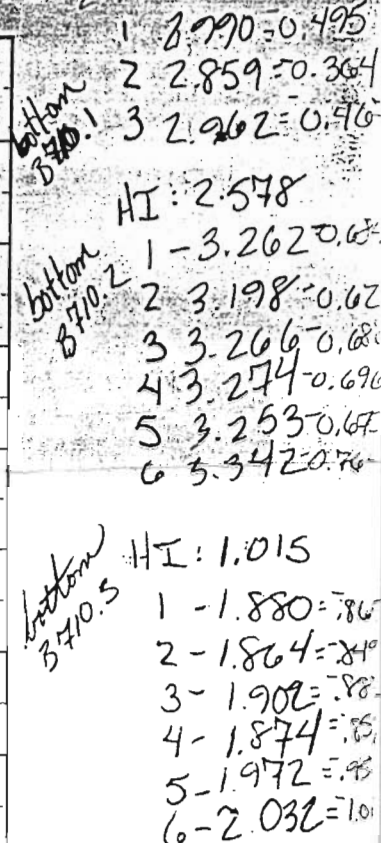 1 2.990=0.495
2 2.859=-0.364
bottom B710.1 3 2.962=0.46
HI: 2.578
bottom B710.2 1 - 3.262-0.68
2 3.198-0.62
3 3.266-0.68
4 3.274-0.696
5 3.253-0.67
6 3.342-0.76
bottom B710.3 HI: 1.015
1 - 1.880=-.86
2 - 1.864=-.84
3 - 1.902=-.88
4 - 1.874=-.85
5 - 1.972=-.95
6 - 2.032=-1.01